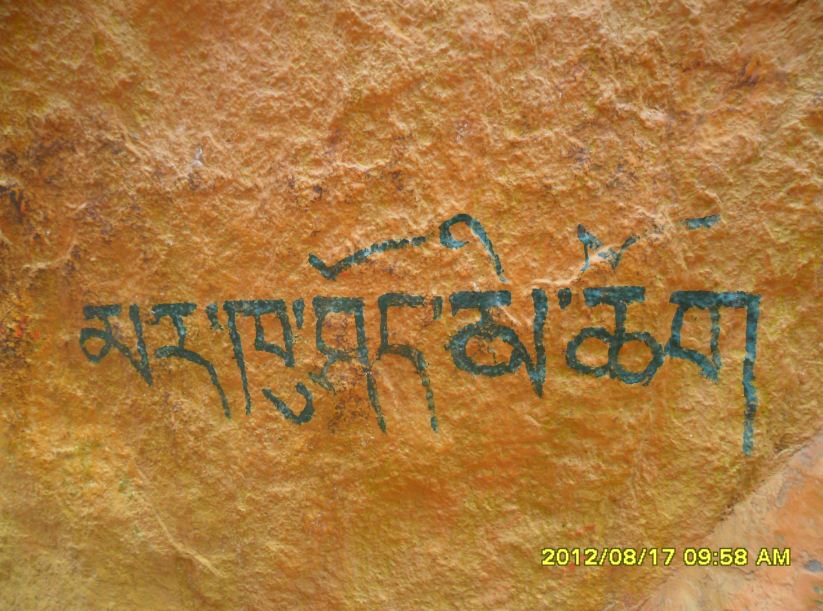 མར་ཁུ་ཤོད་མི་ཆོག
2012/08/17 09:58 AM